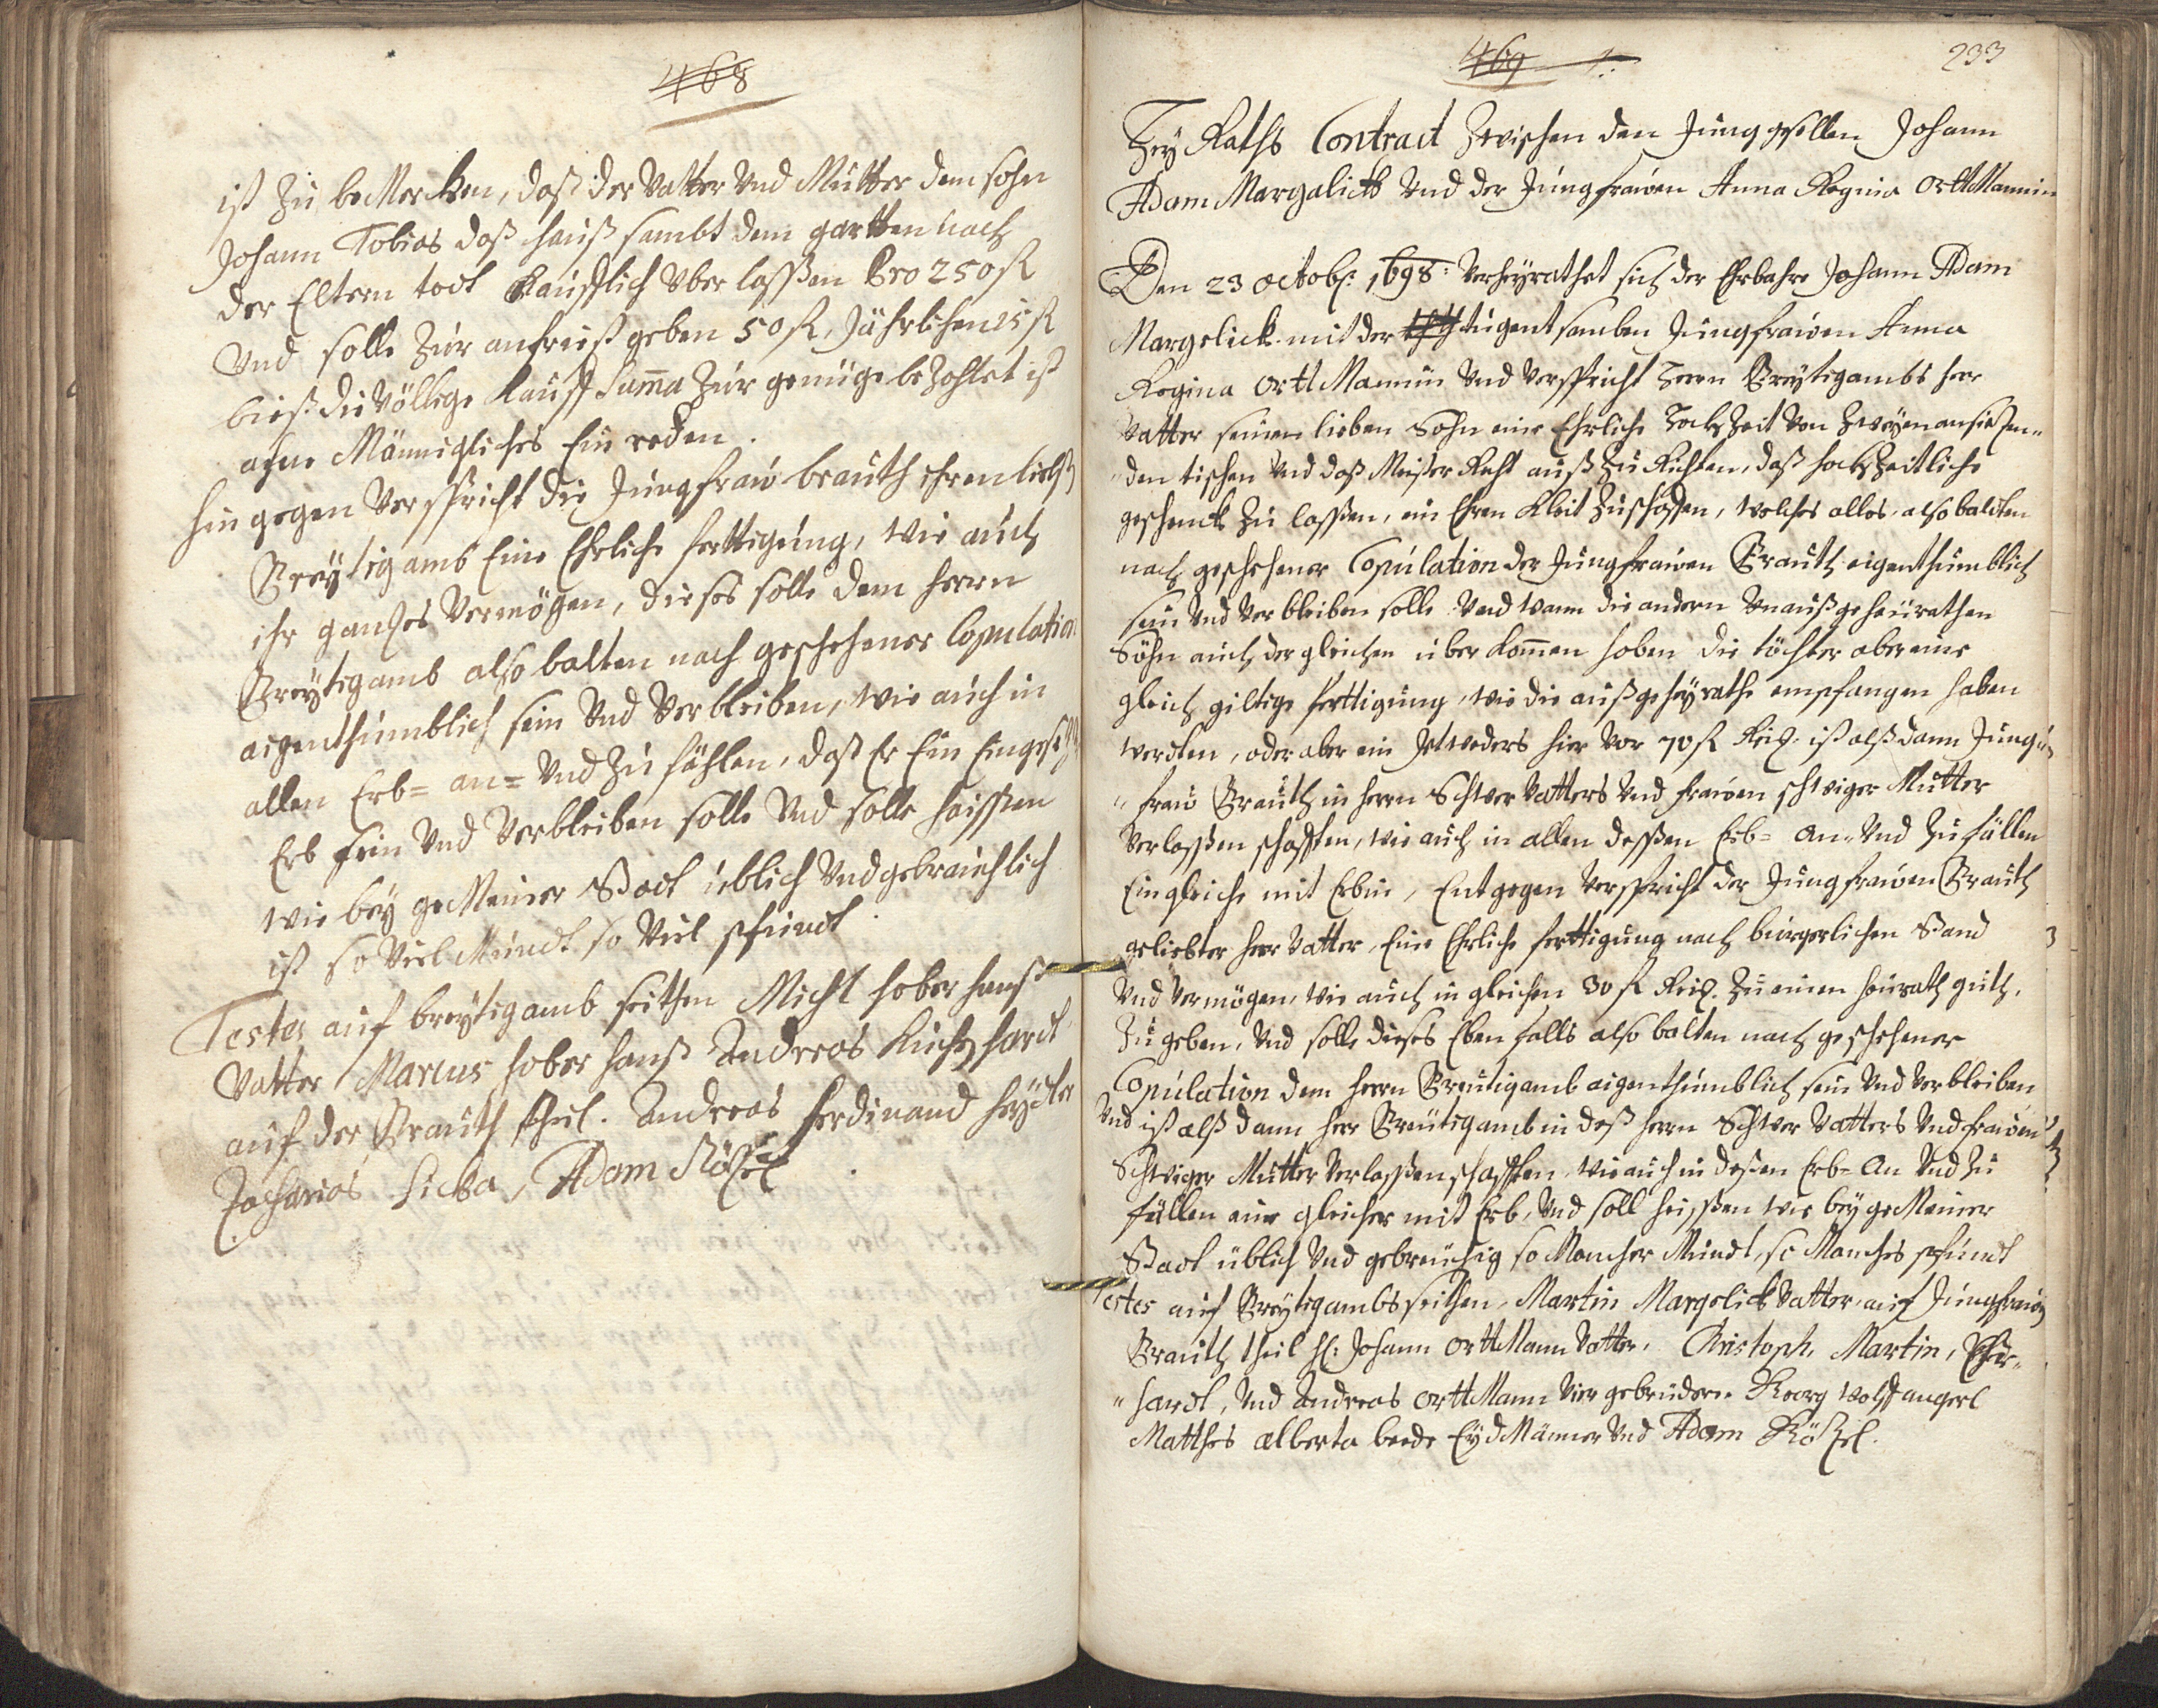 468
ist zu beMercken, daß der Vatter Vnd Mutter dem sohn
Johann Tobias daß hauß sambt dem gartten nach
der Eltern todt Kaufflich Vberlaßen Pro 250 fl
Vnd solle zur anfrist geben 50 fl, Jährlichen 15 fl
bieß die Völlige Kauff Summa zur genüge bezahlet ist
ohne Männigliches Ein reden.
hin gegen Verspricht die Jungfrau brauth ihren liebst
Breytigamb Eine Ehrliche ferttigung, wie auch
ihr gantzes Vermögen, dieses solle dem herrn
Breytigamb also balten nach geschehener Copulation
aigenthumblich sein Vnd Verbleiben, wie auch in
allen Erb= an= Vnd Zu fählen, daß Er Ein
Erb sein Vnd Verbleiben solle Vnd solle heissen
wie bey geMeiner Stadt üblich Vnd gebrauchlich
ist so Viel Mundt so Viel pfundt.
Testes auf breytigamb seithen Michl hober hanß
Vatter Marcus hober hanß Andreas
auf der Brauth theil. Andreas Ferdinand
Zacharias Adam Rötzel
469
233
Hey Raths Contract Zwischen den Junggesellen Johann
Adam Margalick Vnd der Jungfrauen Anna Regina OrttMannin
Den 23 Octob: 1698: Verheyrathet sich der Ehrbahre Johann Adam
Margelick mit der tugentsamben Jungfrauen Anna
Regina OrttMannin Vnd Verspricht herrn Breytigambs herr
Vatter seinen lieben Sohn eine Ehrliche hochZeit Von Zweyen
den tischen Vnd daß Meister Recht auß Zu Richten, daß hochzeitliche
geschenck zu laßen, ein Ehren Kleit Zuschaffen, welches alles also baldten
nach geschehener Copulation der Jungfrauen Brauth eigenthumblich
sein Vnd Verbleiben solle Vnd wann die andern Vnaußgeheurathen
Söhn auch der gleichen überkommen haben die töchter aber eine
gleich giltige ferttigung, wie die außgeheyrathe empfangen haben
werdten, oder aber ein Jetweders hier Vor 70 fl Rei. ist alß dann Jung
frau Brauth in herrn Schwer Vatters Vnd frauen schwiger Mutter
Verlaßenschafften, wie auch in allen deßen Erb= An= Vnd Zufällen
Ein gleiche mit Erbin, Entgegen Verspricht der Jungfrauen Brauth
geliebter herr Vatter, Eine Ehrliche ferttigung nach bürgerlichen Stand
Vnd Vermögen, wie auch in gleichen 30 fl Rei. Zu einen heurath guth.
Zu geben, Vnd solle dieses Eben falls also balten nach geschehener
Copulation dem herrn Breutigamb aigenthumblich sein Vnd Verbleiben
Vnd ist alß dann herr Breutigamb in deß herrn Schwer Vatters Vnd frauen
Schwiger Mutter Verlaßenschafften, wie auch in deßen Erb= An Vnd Zu
fällen ein gleicher mit Erb, Vnd soll heissen wie bey geMeiner
Stadt üblich Vnd gebreuchig so Mancher Mundt, so Manches pfundt
Testes auf Breytigambs seithen, Martin Margelick Vatter, auf Jungfrauen
Brauth theil H: Johann OrttMann Vatter. Christoph, Martin,
hardt, Vnd Andreas OrttMann Vier gebrüdere. Georg Wolffangerl
Matthes Alberta beede EydMänner Vnd Adam Rötzel.